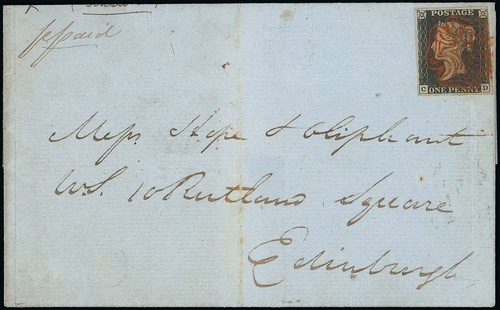 prepaid
POSTAGE
C D
ONE PENNY
Messrs Hope & Oliphant
W.S. 10 Rutland Square
Edinburgh